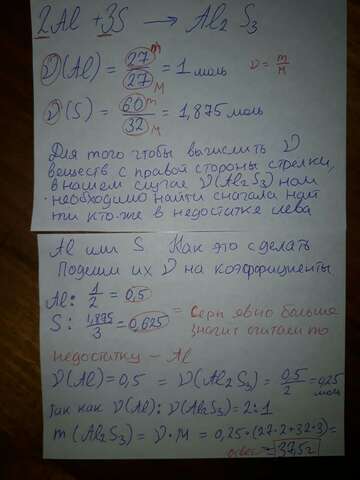 2Al + 3S → Al₂S₃
ν(Al) = 27 m / 27 M = 1 моль ν = m/M
ν(S) = 60 m / 32 M = 1,875 моль
Для того чтобы вычислить ν
веществ с правой стороны стрелки,
в нашем случае ν(Al₂S₃) нам
необходимо найти сначала най
ти кто-же в недостатке слева
Al или S Как это сделать
Поделим их ν на коэффициенты
Al: 1/2 = 0,5
S: 1,875/3 = 0,625 = Серы явно больше
значит считаем по
недостатку - Al
ν(Al) = 0,5 = ν(Al₂S₃) = 0,5/2 = 0,25 моль
так как ν(Al) : ν(Al₂S₃) = 2:1
m(Al₂S₃) = ν·M = 0,25·(27·2+32·3) =
ответ = 37,5г